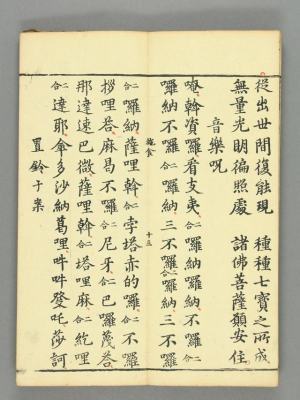 從出世間復能現　種種七寶之所成
無量光明徧照處　諸佛菩薩願安住
音樂呪
唵斡資囉看支夷　合囉納囉納不囉二
囉納不囉合囉納三不囉合囉納三不
施食　十三
二合囉納薩哩斡二合孛塔赤的囉二合不囉
拶哩荅麻曷不囉二合尼牙二合巴囉蔑荅
那達速巴微薩哩斡二合塔哩麻二合紇哩
二合達耶傘多沙納葛哩吽吽登吒莎訶
置鈴于案